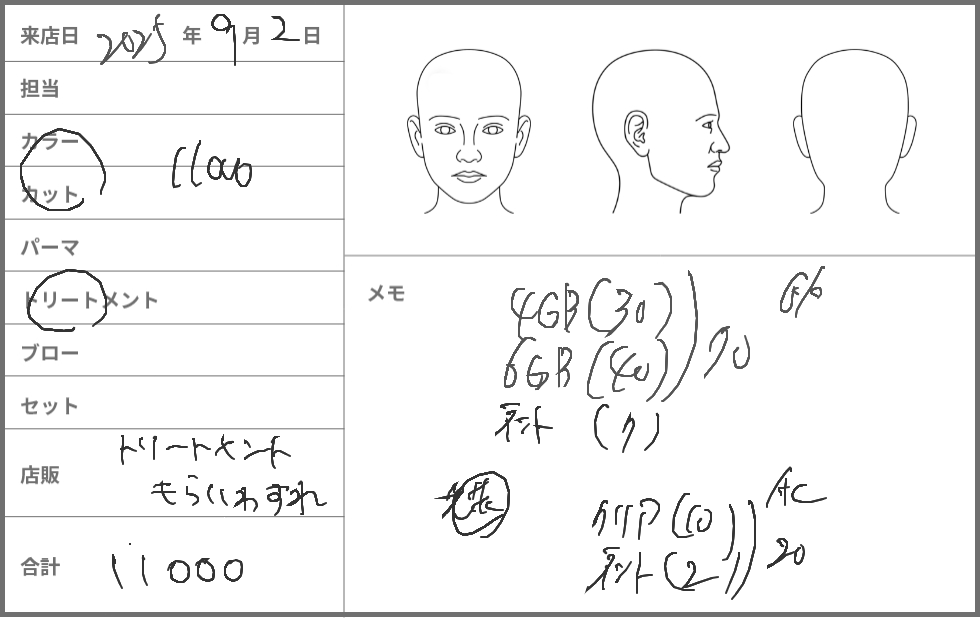 来店日 2025年9月2日
担当
カラー
11000
カット
パーマ
トリートメント
ブロー
セット
店販 トリートメント
もらいわすれ
合計 11000
メモ
4GB(30)
6GB(40)
70
(7)
クリア(10)
(2)
20